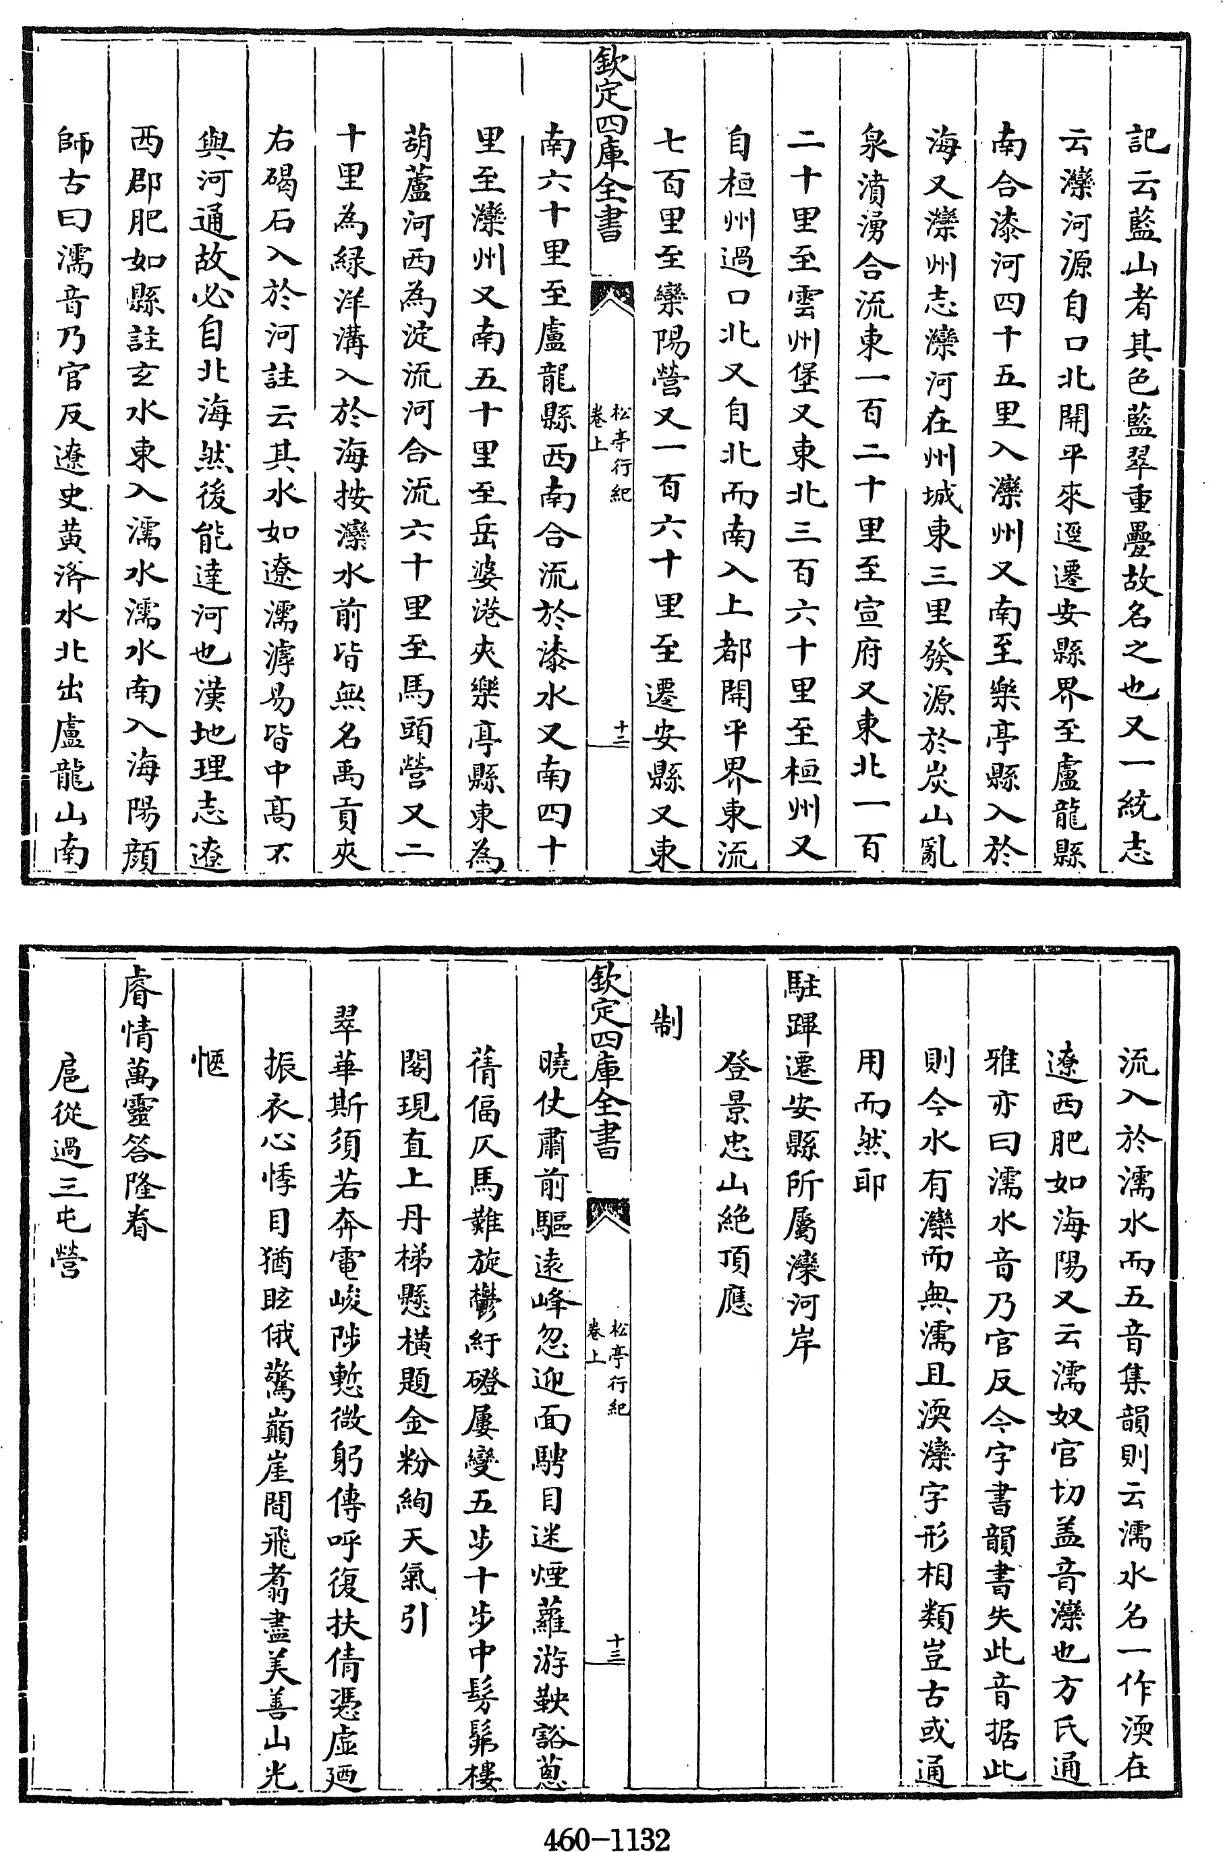 記云藍山者其色藍翠重疊故名之也又一統志
云灤河源自口北開平來逕遷安縣界至盧龍縣
南合漆河四十五里入灤州又南至樂亭縣入於
海又灤州志灤河在州城東三里發源於炭山亂
泉濆湧合流東一百二十里至宣府又東北一百
二十里至雲州堡又東北三百六十里至桓州又
自桓州過口北又自北而南入上都開平界東流
七百里至欒陽營又一百六十里至遷安縣又東
欽定四庫全書
松亭行紀
卷上
十二
南六十里至盧龍縣西南合流於漆水又南四十
里至灤州又南五十里至岳婆港夾樂亭縣東為
葫蘆河西為淀流河合流六十里至馬頭營又二
十里為綠洋溝入於海按灤水前皆無名禹貢夾
右碣石入於河註云其水如遼濡滹易皆中高不
與河通故必自北海然後能達河也漢地理志遼
西郡肥如縣註玄水東入濡水濡水南入海陽顏
師古曰濡音乃官反遼史黃洛水北出盧龍山南
流入於濡水而五音集韻則云濡水名一作渜在
遼西肥如海陽又云濡奴官切盖音灤也方氏通
雅亦曰濡水音乃官反今字書韻書失此音据此
則今水有灤而無濡且渜灤字形相類豈古或通
用而然耶
駐蹕遷安縣所屬灤河岸
登景忠山絶頂應
制
欽定四庫全書
松亭行紀
卷上
十三
曉仗肅前驅遠峰忽迎面騁目迷煙蘿游鞅豁蔥
蒨偪仄馬難旋鬱紆磴屢變五步十步中髣髴樓
閣現直上丹梯懸橫題金粉絢天氣引
翠華斯須若奔電峻陟慙微躬傳呼復扶倩憑虛廼
振衣心悸目猶眩俄驚巔崖間飛翥盡美善山光
愜
睿情萬靈答隆眷
扈從過三屯營
460-1132